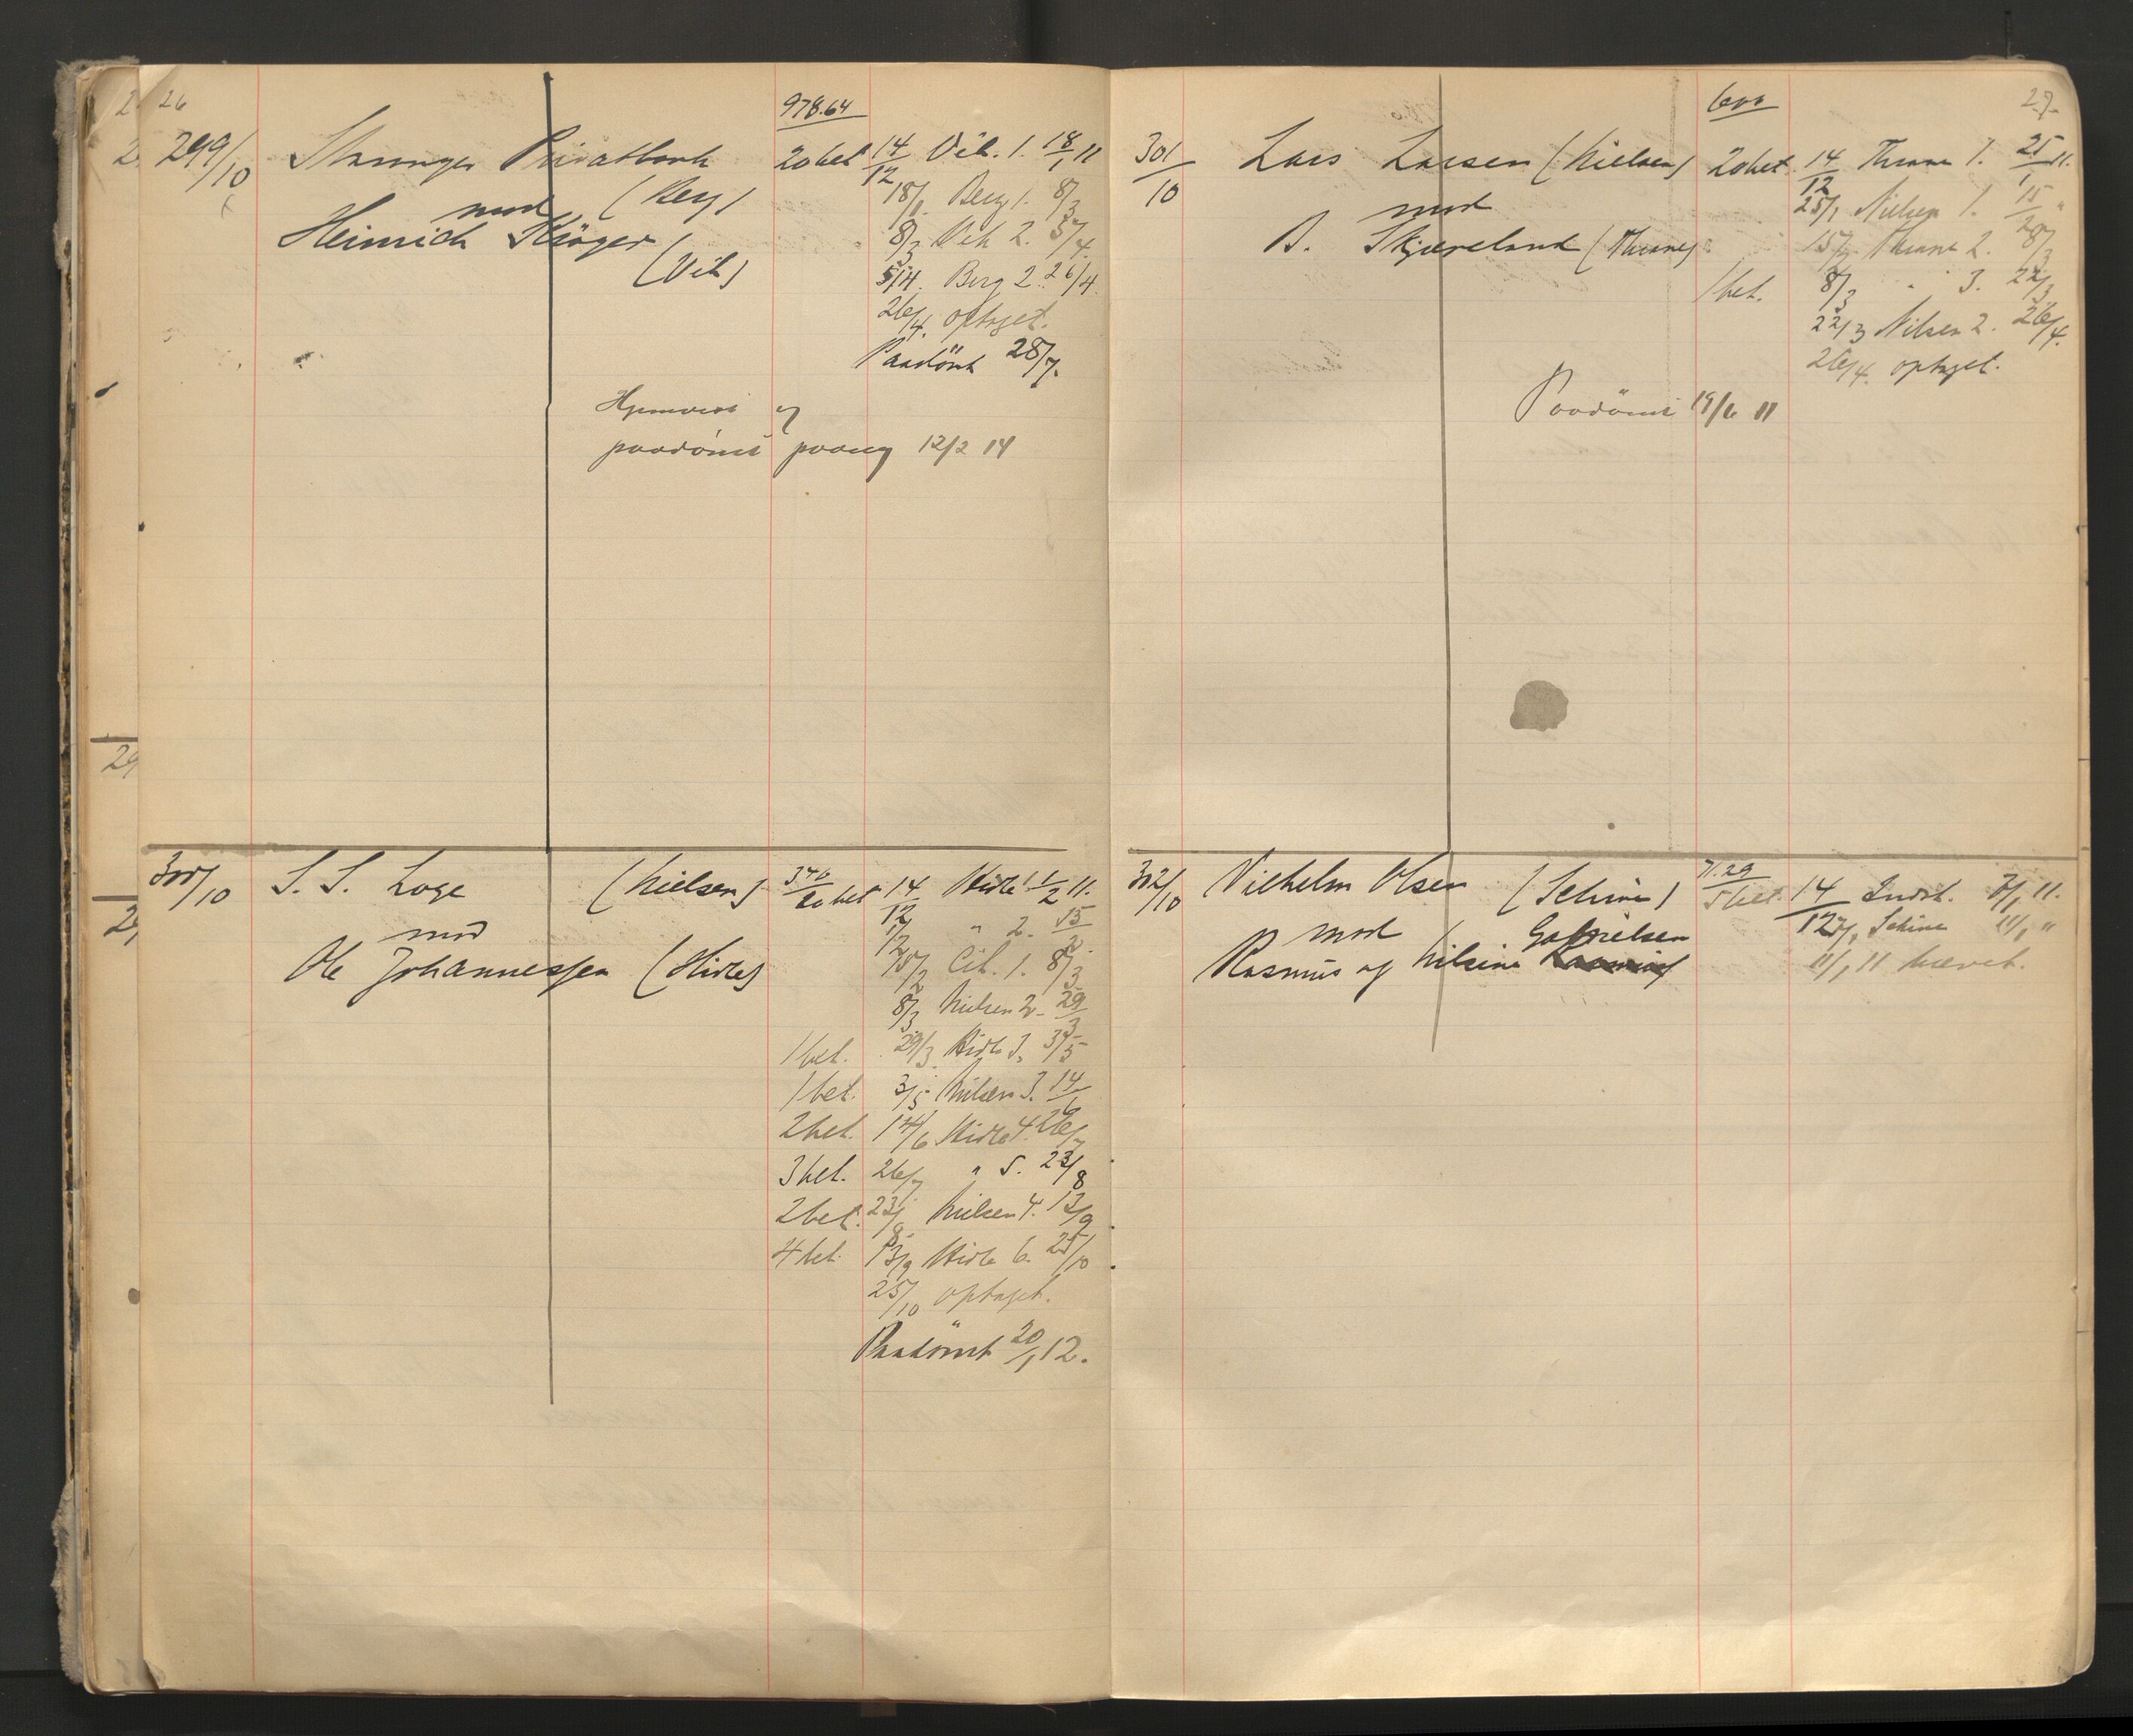 26
978.64
299/10 Stavanger Privatbank 20 bet 14/12 Vib. 1. 18/1 11
(Berg) 18/1 Berg 1. 8/3
mod
Heinrich 8/3 Vib 2. 5/4
(Vib) 5/4 Berg 2. 26/4
26/4 optaget.
Paadömt 28/7.
Hjemvist og
paadömt paany 12/2 14
300/10 S. S. Loge (Nielsen) 20 bet 14/12 Hidle 1. 1/2 11.
mod 1/2 " 2. 15/2
Ole Johannessen (Hidle) 15/2 Cit. 1. 8/3
8/3 Nielsen 2. 29/3
1 bet. 29/3 Hidle 3. 3/5
1 bet. 3/5 Nielsen 3. 14/6
2 bet. 14/6 Hidle 4. 26/7
3 bet. 26/7 " 5. 23/8
2 bet. 23/8 Nielsen 4. 13/9
4 bet. 13/9 Hidle 6. 25/10
25/10 optaget.
Paadömt 20/1 12.
27.
600
301/10 Lars Larsen (Nielsen) 20 bet. 14/12 Thrane 1. 25/1 11.
mod 25/1 Nielsen 1. 15/2 "
B. Skjæveland (Thrane) 15/2 Thrane 2. 8/3
1 bet. 8/3 " 3. 22/3
22/3 Nilsen 2. 26/4.
26/4. optaget.
Paadömt 19/6 11
71.29
302/10 Vilhelm Olsen (Schiøn) 5 bet. 14/12 Indst. 7/1 11.
mod Gabrielsen 7/1 Schiøn 11/1 "
Rasmus og Nilsine 11/1 11 hævet.